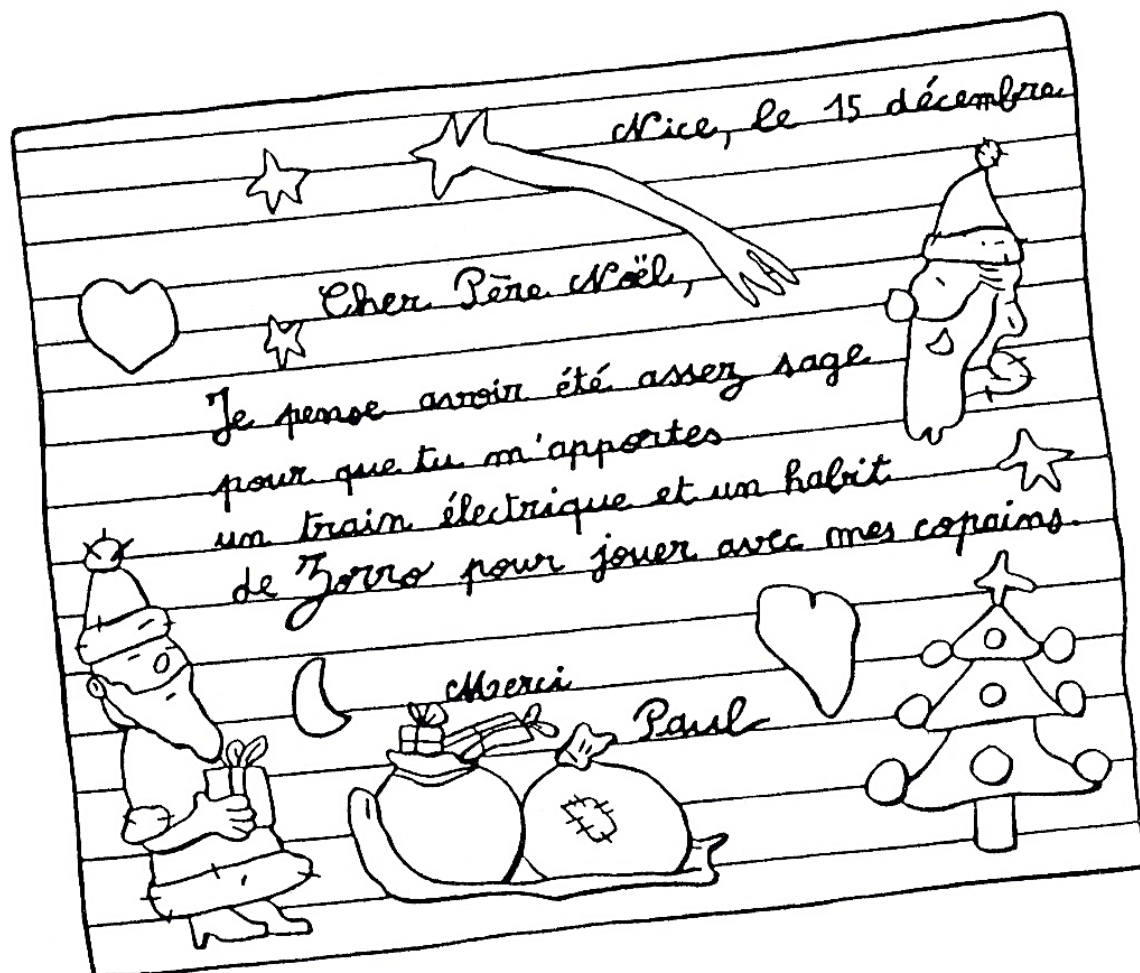 Nice, le 15 décembre
Cher Père Noël,
Je pense avoir été assez sage
pour que tu m'apportes
un train électrique et un habit
de Zorro pour jouer avec mes copains.
Merci
Paul